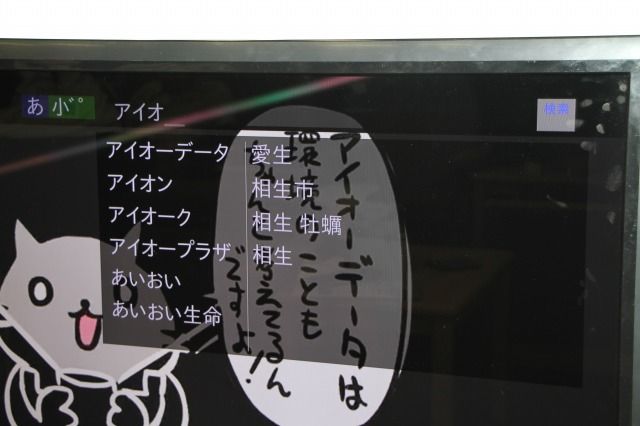 あ 小゛゜ アイオ_ 検索
アイオーデータ
アイオン
アイオーク
アイオープラザ
あいおい
あいおい生命
愛生
相生市
相生 牡蠣
相生
アイオーデータは
環境のことも
ちゃんと考えてるん
ですよ!